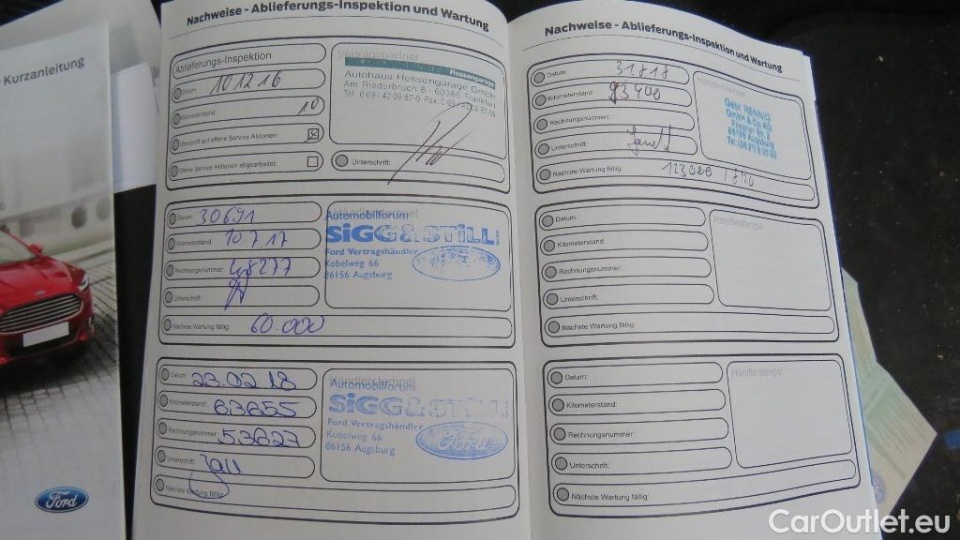 Kurzanleitung
Ford
Nachweise - Ablieferungs-Inspektion und Wartung
Ablieferungs-Inspektion
Datum: 10.12.16
Kilometerstand: 10
Überprüft auf offene Service Aktionen:
Offene Service Aktionen abgearbeitet:
Vertragspartner
Hessengarage
Autohaus Hessengarage GmbH
Am Riederbruch 8 - 60386 Frankfurt
Unterschrift:
Datum: 30691
Kilometerstand: 10.7.17
Rechnungsnummer:
Unterschrift:
Nächste Wartung fällig: 60.000
Händlerstempel
Automobilforum
SiGG & STiLL
Ford Vertragshändler
Kobelweg 66
86156 Augsburg
Ford
Datum: 23.02.18
Kilometerstand: 63655
Rechnungsnummer: 53827
Unterschrift:
Nächste Wartung fällig:
Händlerstempel
Automobilforum
SiGG & STiLL
Ford Vertragshändler
Kobelweg 66
86156 Augsburg
Ford
Nachweise - Ablieferungs-Inspektion und Wartung
Datum: 31.8.18
Kilometerstand: 93400
Rechnungsnummer:
Unterschrift:
Nächste Wartung fällig: 123000 / 8.20
Augsburg
Datum:
Kilometerstand:
Rechnungsnummer:
Unterschrift:
Nächste Wartung fällig:
Händlerstempel
Datum:
Kilometerstand:
Rechnungsnummer:
Unterschrift:
Nächste Wartung fällig:
Händlerstempel
CarOutlet.eu